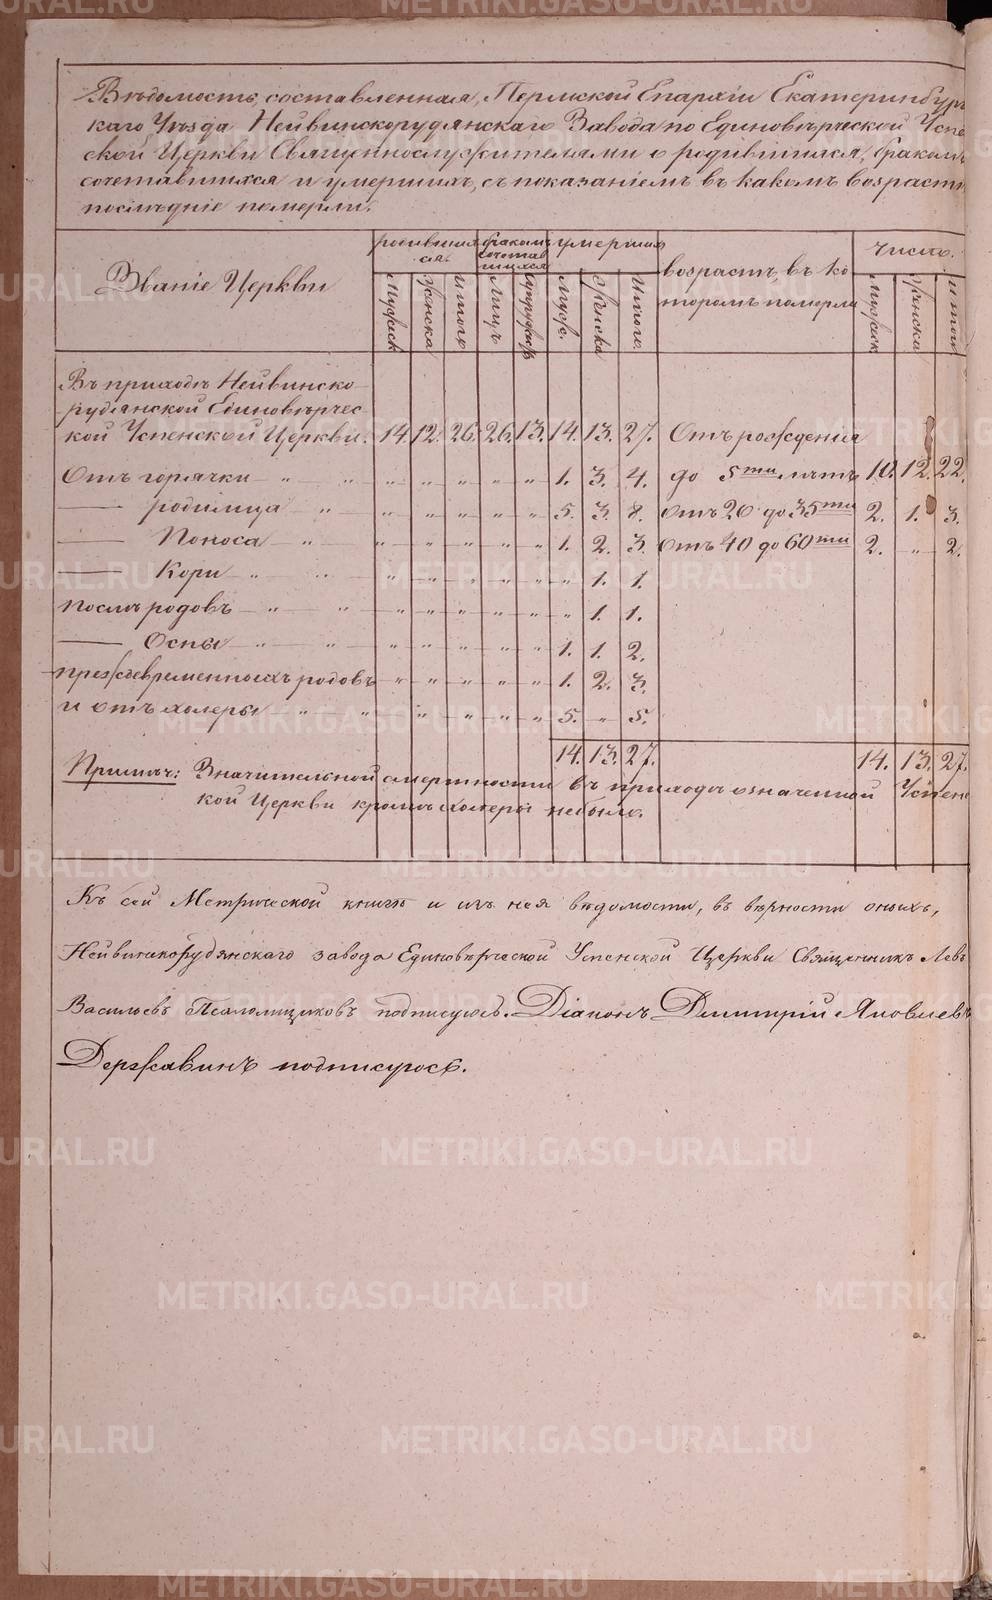 Вѣдомость, составленная, Пермской Епархіи Екатеринбург
каго Уѣзда Нейвинскорудянскаго Завода по Единовѣрческой Успе
ской Церкви Священнослужителями о родившихся, бракомъ
сочетавшихся и умершихъ, съ показаніемъ въ какомъ возрастѣ
послѣдніе померли.
Званіе Церкви
родившихся
бракомъ сочетавшихся
умершихъ
возрастъ, въ ко
торомъ померли
число.
Мужеск Женска Итого Лицъ Супруж Муже. Женска Итого. Мужеск Женска Итого
Въ приходѣ Нейвинско
рудянской Единовѣрчес
кой Успенской Церкви. 14. 12. 26. 26. 13. 14. 13. 27. Отъ рожденія
Отъ горячки " " " " " " " 1. 3. 4. до 5ти лѣтъ 10. 12. 22.
— родимца " " " " " " 5. 3. 8. отъ 20 до 35ти 2. 1. 3.
— Поноса " " " " " " 1. 2. 3. отъ 40 до 60ти 2. " 2.
— Кори " " " " " " " " 1. 1.
послѣ родовъ " " " " " " " " 1. 1.
— Оспы " " " " " " " 1. 1. 2.
преждевременныхъ родовъ " " " " " 1. 2. 3.
и отъ холеры " " " " " " 5. " 5.
14. 13. 27. 14. 13. 27.
Примѣч: Значительной смертности въ приходѣ означенной Успенс
кой Церкви кромѣ холеры небыло.
Къ сей Метрической книгѣ и изъ нея вѣдомости, въ вѣрности оныхъ,
Нейвинскорудянскаго завода Единовѣрческой Успенской Церкви Священникъ Левъ
Васильевъ Псаломщиковъ подписуюсь. Діаконъ Димитрій Яковлевъ
Державинъ подписуюсь.
METRIKI.GASO-URAL.RU